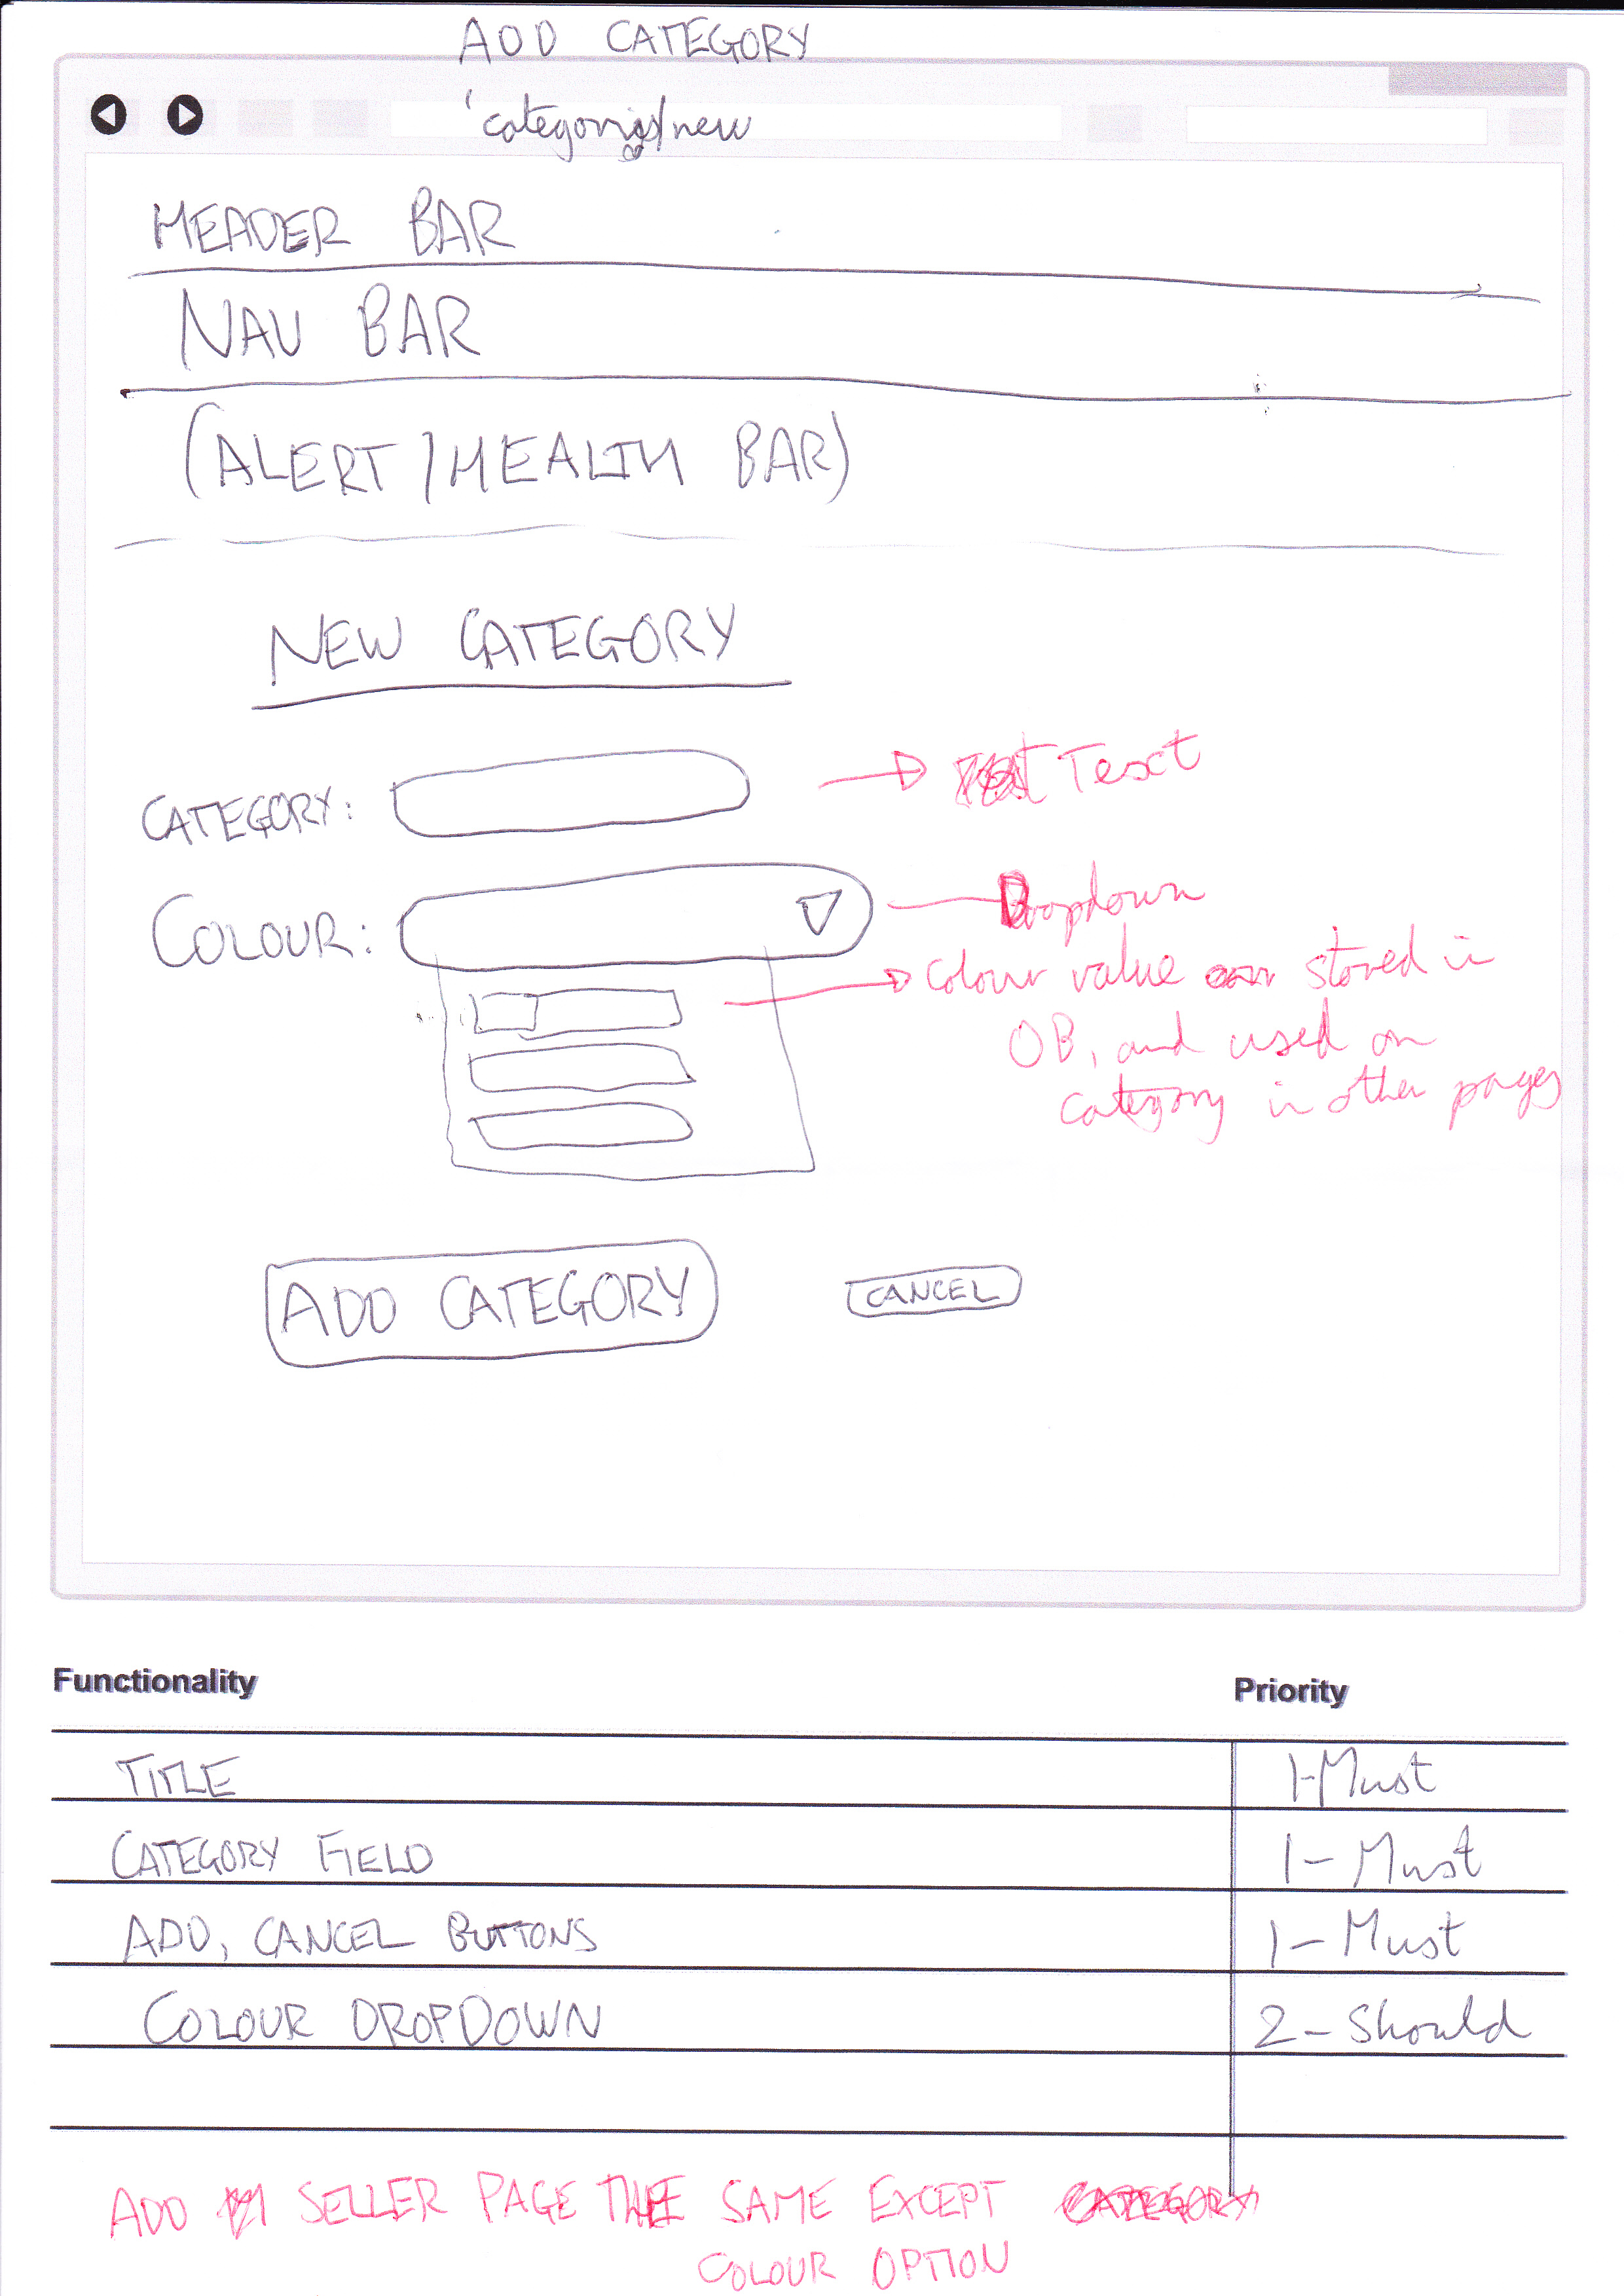 ADD CATEGORY
'categories/new
HEADER BAR
NAV BAR
(ALERT/HEALTH BAR)
NEW CATEGORY
CATEGORY:
Text
COLOUR:
Dropdown
Colour value stored in
DB, and used on
category in other pages
ADD CATEGORY
CANCEL
Functionality Priority
TITLE 1-Must
CATEGORY FIELD 1-Must
ADD, CANCEL BUTTONS 1-Must
COLOUR DROPDOWN 2-Should
ADD SELLER PAGE THE SAME EXCEPT CATEGORY
COLOUR OPTION